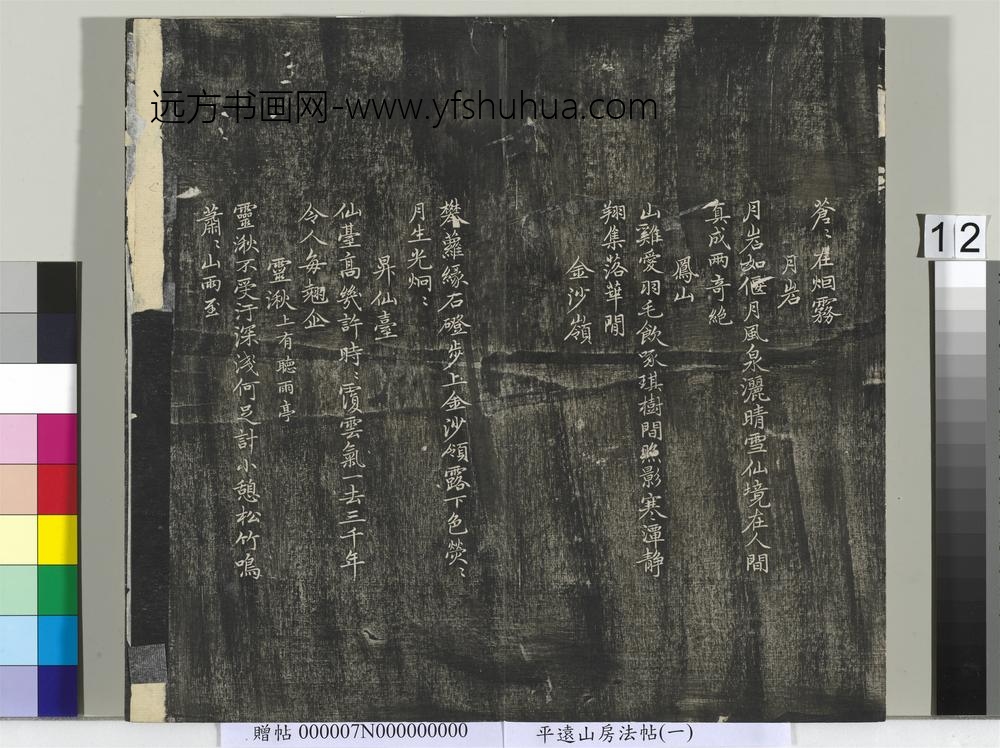 远方书画网-www.yfshuhua.com
12
蒼〻在烟霧
月岩
月岩如偃月風泉灑晴雪仙境在人間
真成兩奇絶
鳳山
山雞愛羽毛飲啄琪樹間照影寒潭静
翔集落華間
金沙嶺
攀蘿緣石磴步上金沙嶺露下色熒〻
月生光炯〻
昇仙臺
仙臺高幾許時〻覆雲氣一去三千年
令人每翹企
靈湫上有聽雨亭
靈湫不受汙深淺何足計小憩松竹鳴
蕭〻山雨至
贈帖 000007N000000000
平遠山房法帖(一)